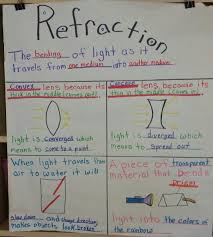 Refraction
The bending of light as it
travels from one medium into another medium
Convex lens because its
thick in the middle (curves out).
light is converged which
means to come to a point
Concave lens because its
thin in the middle (curves in).
light is diverged which
means to spread out
When light travels from
air to water it will
slow down and change direction,
makes objects look broken
A piece of transparent
material that bends
prism
light into the colors of
the rainbow